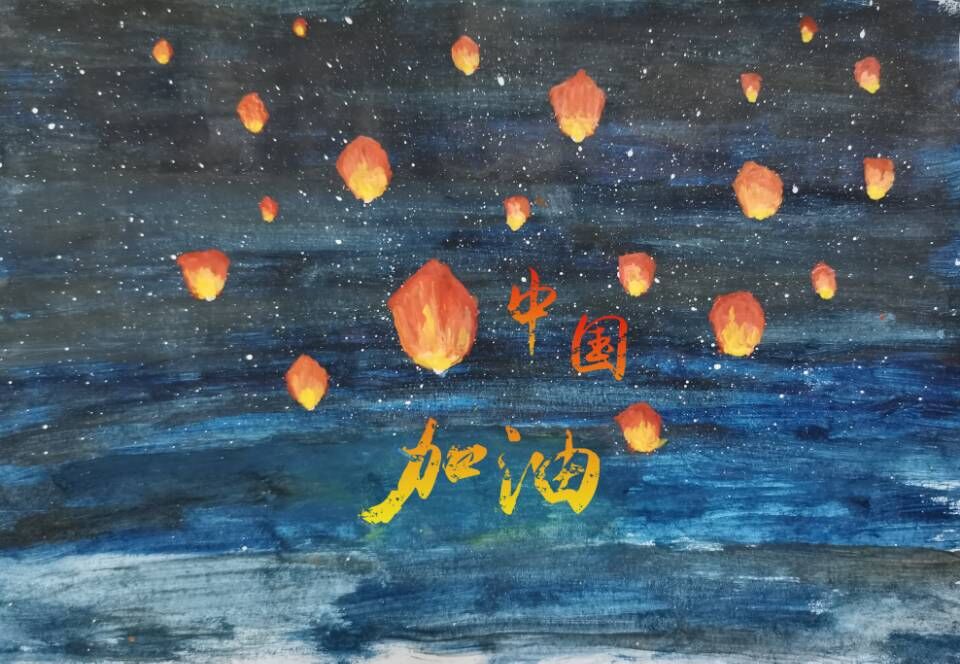 中国
加油